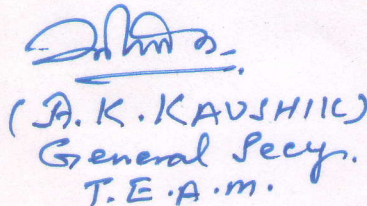 (A.K. KAUSHIK)
General Secy.
T.E.A.M.